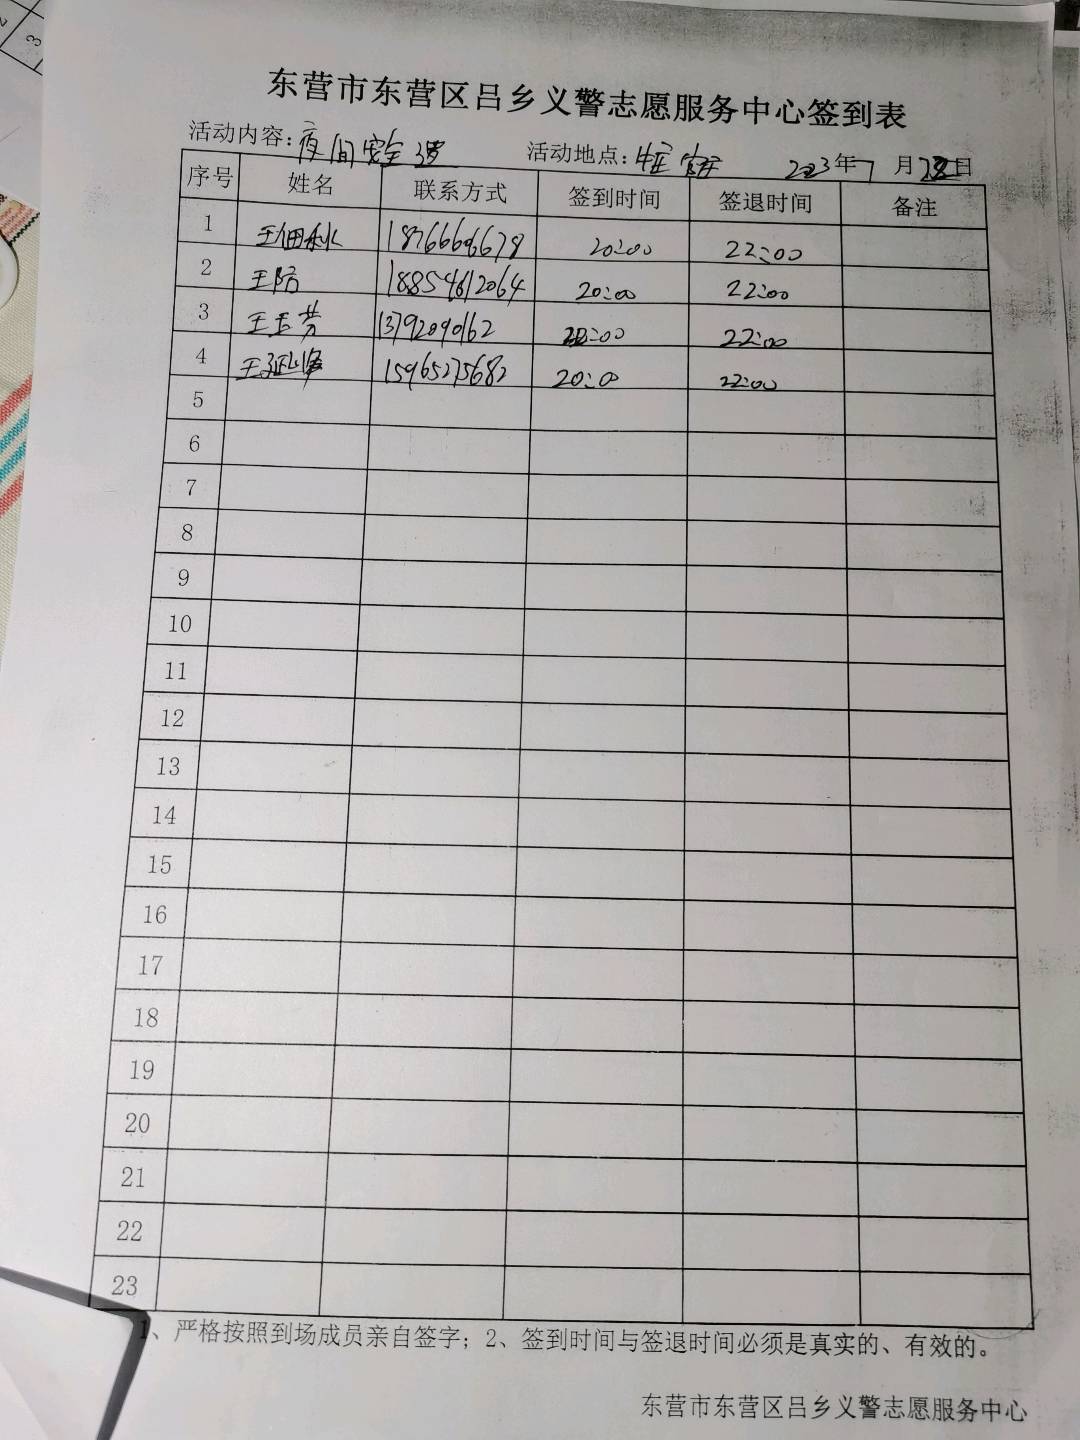 东营市东营区吕乡义警志愿服务中心签到表
活动内容：夜间安全 活动地点： 2023年7月 日
序号 姓名 联系方式 签到时间 签退时间 备注
1 王佃利 18766606678 20:00 22:00
2 王防 18854612064 20:00 22:00
3 王玉芳 13792090162 20:00 22:00
4 王延峰 15965275682 20:00 22:00
5
6
7
8
9
10
11
12
13
14
15
16
17
18
19
20
21
22
23
1、严格按照到场成员亲自签字；2、签到时间与签退时间必须是真实的、有效的。
东营市东营区吕乡义警志愿服务中心